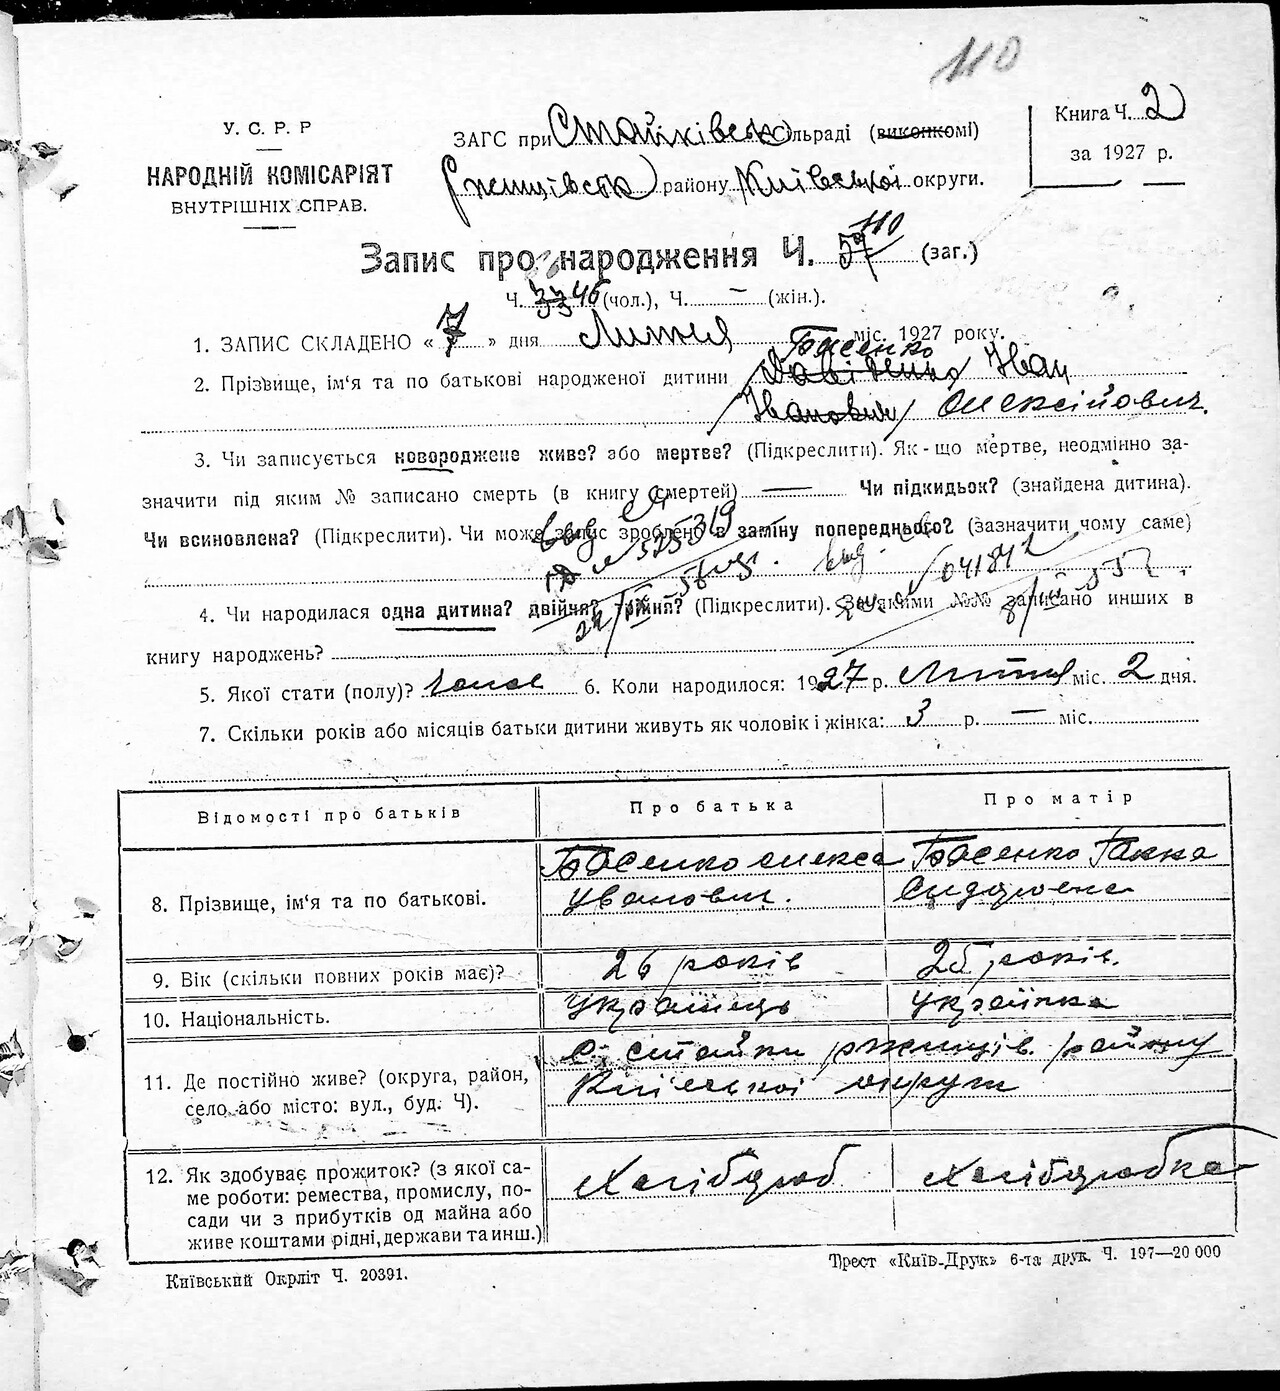 110
У. С. Р. Р
НАРОДНІЙ КОМІСАРІЯТ
ВНУТРІШНІХ СПРАВ.
ЗАГС при Стайківськ сільраді (виконкомі)
Ржищівськ району Київської округи.
Книга Ч. 2
за 1927 р.
Запис про народження Ч. 57 110 (заг.)
Ч. 33 46 (чол.), Ч. — (жін.).
1. ЗАПИС СКЛАДЕНО « 7 » дня Лютня міс. 1927 року.
Басенко
2. Прізвище, ім‘я та по батькові народженої дитини Давіденко Іван
Іванович Олексійович.
3. Чи записується новороджене живе? або мертве? (Підкреслити). Як-що мертве, неодмінно за-
значити під яким № записано смерть (в книгу смертей) — Чи підкидьок? (знайдена дитина).
Чи всиновлена? (Підкреслити). Чи може запис зроблено в заміну попереднього? (зазначити чому саме)
4. Чи народилася одна дитина? двійня? трійня? (Підкреслити). За якими №№ записано инших в
книгу народжень?
5. Якої стати (полу)? 6. Коли народилося: 1927 р. Лютня міс. 2 дня.
7. Скільки років або місяців батьки дитини живуть як чоловік і жінка: 3 р. — міс.
Відомості про батьків
Про батька
Про матір
8. Прізвище, ім‘я та по батькові.
Басенко олекса
Иванович.
Басенко Ганна
Сидоровна
9. Вік (скільки повних років має)?
26 років
25 років.
10. Національність.
Українець
Українка
11. Де постійно живе? (округа, район,
село або місто: вул., буд. Ч).
С. Стайки ржищів. району
Київської округи
12. Як здобуває прожиток? (з якої са-
ме роботи: ремества, промислу, по-
сади чи з прибутків од майна або
живе коштами рідні, держави та инш.)
Хлібороб
Хліборобка
Київський Окрліт Ч. 20391.
Трест «Київ-Друк» 6-та друк. Ч. 197—20 000